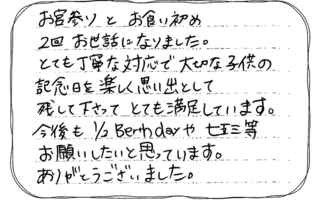 お宮参りと お食い初め
2回 お世話になりました。
とても丁寧な対応で 大切な子供の
記念日を楽しく思い出として
残して下さって とても満足しています。
今後も 1/2 Berthdayや 七五三等
お願いしたいと思っています。
ありがとうございました。